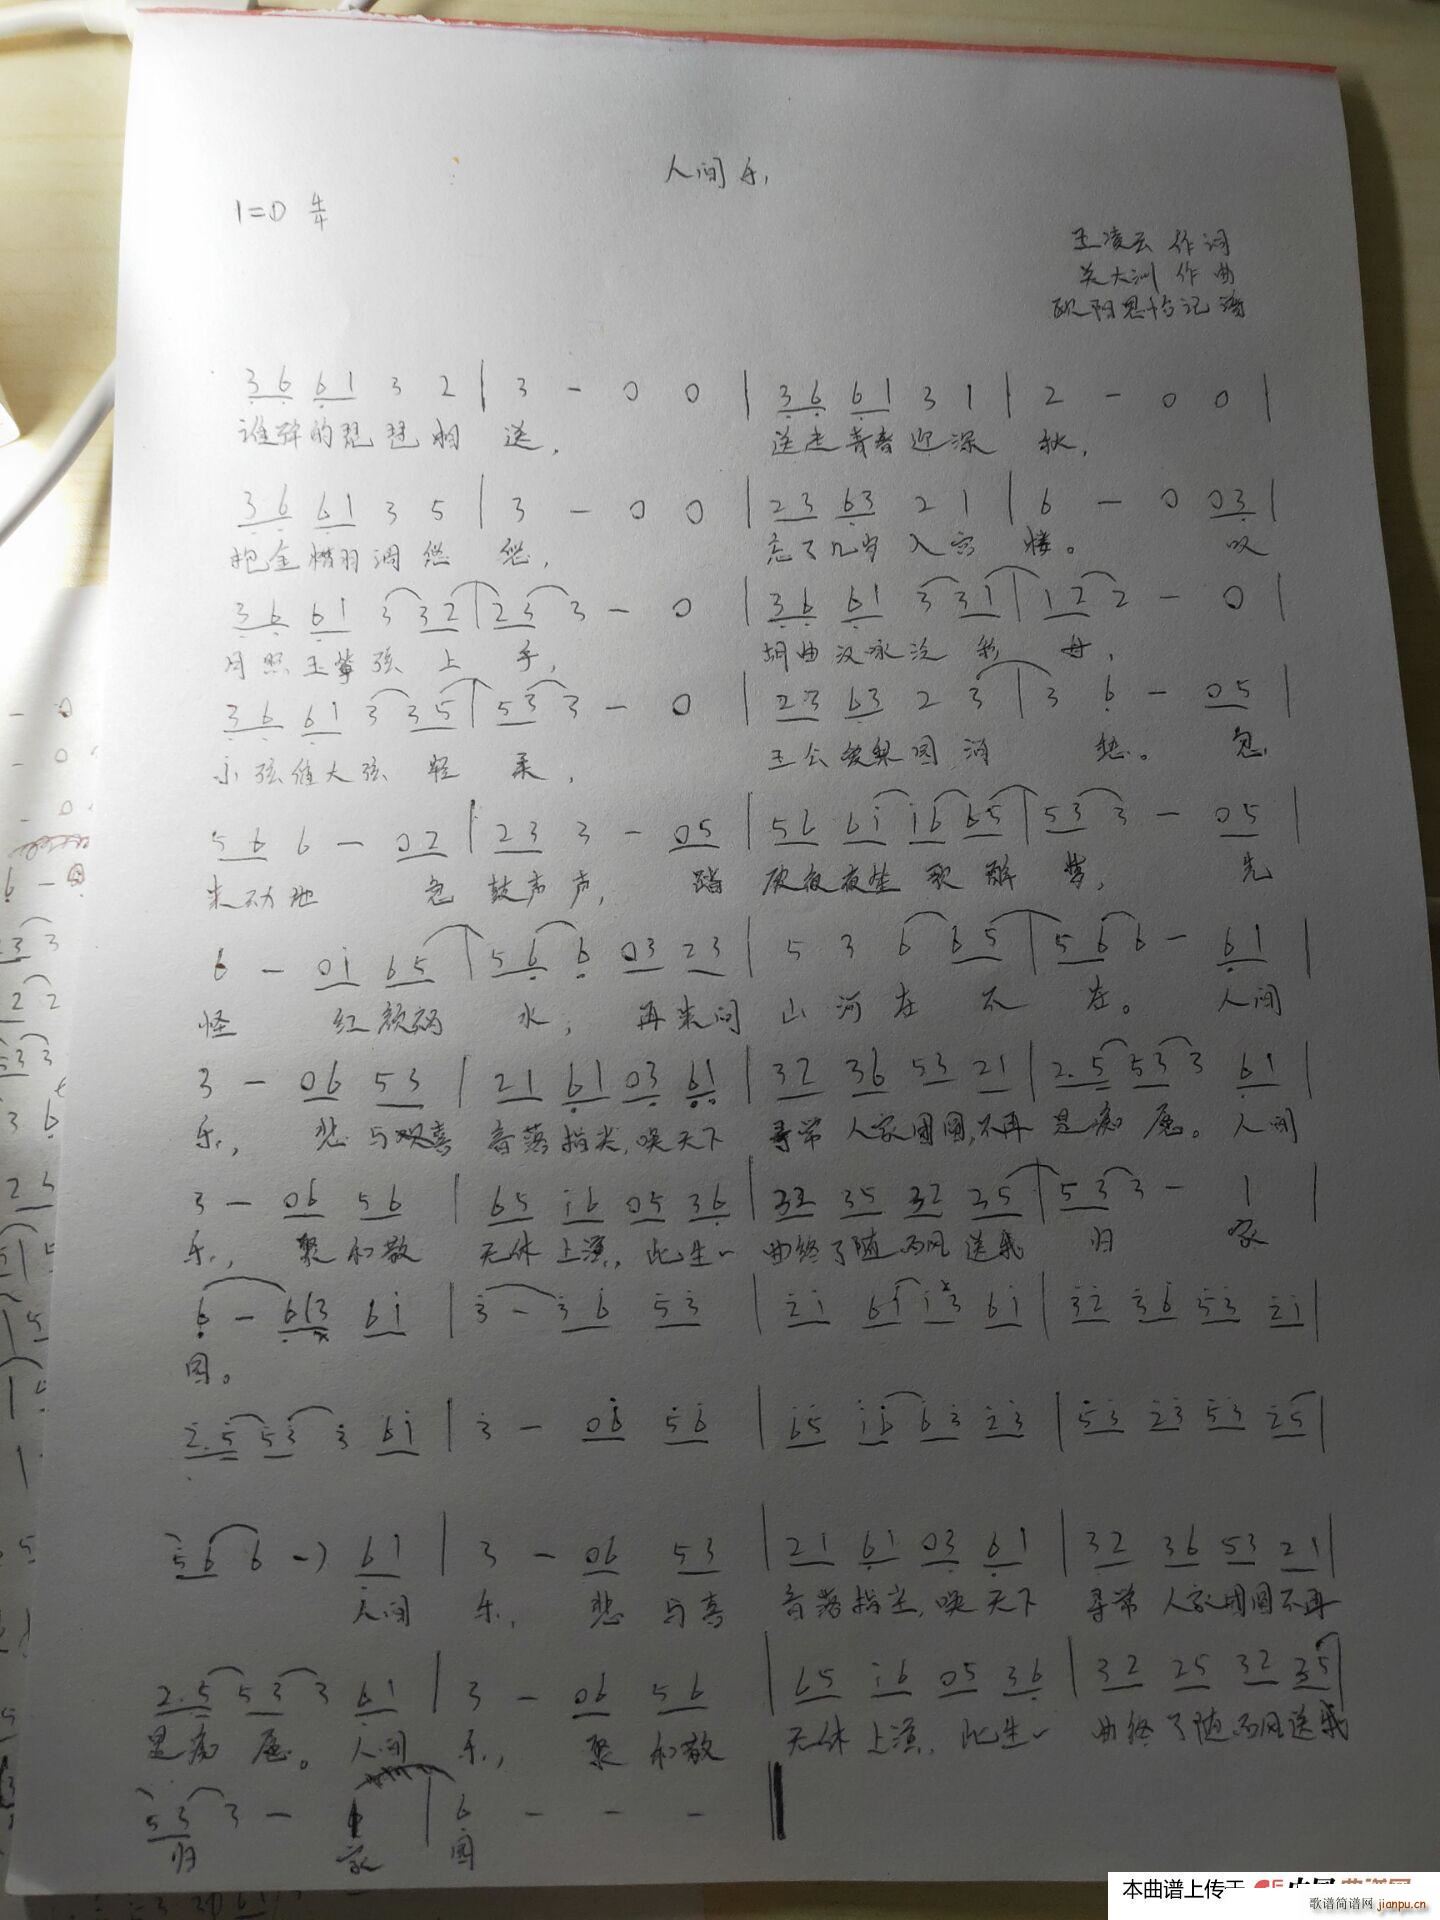 人间乐
1=D 4/4
王凌云 作词
关大洲 作曲
欧阳思怡记谱
3 6 6 1 3 2 | 3 - 0 0 | 3 6 6 1 3 1 | 2 - 0 0 |
谁弹的琵琶相送, 送走青春迎深秋,
3 6 6 1 3 5 | 3 - 0 0 | 2 3 6 3 2 1 | 6 - 0 0 3 |
抱金 羽调悠悠, 忘了几岁入宫楼。 叹
3 6 6 1 3 3 2 | 2 3 3 - 0 | 3 6 6 1 3 3 1 | 1 2 2 - 0 |
月照玉 弦上手, 胡曲汉 泛 舟,
3 6 6 1 3 3 5 | 5 3 3 - 0 | 2 3 6 3 2 3 | 3 6 - 0 5 |
小弦 大弦轻柔, 王公爱梨园消愁。 忽
5 6 6 - 0 2 | 2 3 3 - 0 5 | 5 6 6 i i 6 6 5 | 5 3 3 - 0 5 |
来动地 急鼓声声, 踏 夜夜笙歌醉梦, 先
6 - 0 i 6 5 | 5 6 6 0 3 2 3 | 5 3 6 6 5 | 5 6 6 - 6 1 |
怪 红颜祸水, 再来问山河在不在。 人间
3 - 0 6 5 3 | 2 1 6 1 0 3 6 1 | 3 2 3 6 5 3 2 1 | 2. 5 5 3 3 6 1 |
乐, 悲与欢喜 音落指尖,唤天下 寻常人家团圆,不再是痴愿。 人间
3 - 0 6 5 6 | 6 5 i 6 0 5 3 6 | 3 2 3 5 3 2 3 5 | 5 3 3 - 1 |
乐, 聚和散 无休上演, 此生一 曲终了随西风送我归 家
6 - 6 1 3 6 i | 3 - 3 6 5 3 | 2 i 6 i i 3 6 i | 3 2 3 6 5 3 2 i |
园。
2. 5 5 3 3 6 i | 3 - 0 6 5 6 | 6 5 i 6 6 3 2 3 | 5 3 2 3 5 3 2 5 |
5 6 6 -) 6 1 | 3 - 0 6 5 3 | 2 1 6 1 0 3 6 1 | 3 2 3 6 5 3 2 1 |
人间 乐, 悲与喜 音落指尖,唤天下 寻常人家团圆不再
2. 5 5 3 3 6 1 | 3 - 0 6 5 6 | 6 5 i 6 0 5 3 6 | 3 2 2 5 3 2 3 5 |
是痴愿。 人间 乐, 聚和散 无休上演, 此生一 曲终了随西风送我
5 3 3 - 1 | 6 - - - |
归 家 园
本曲谱上传于
歌谱简谱网 jianpu.cn